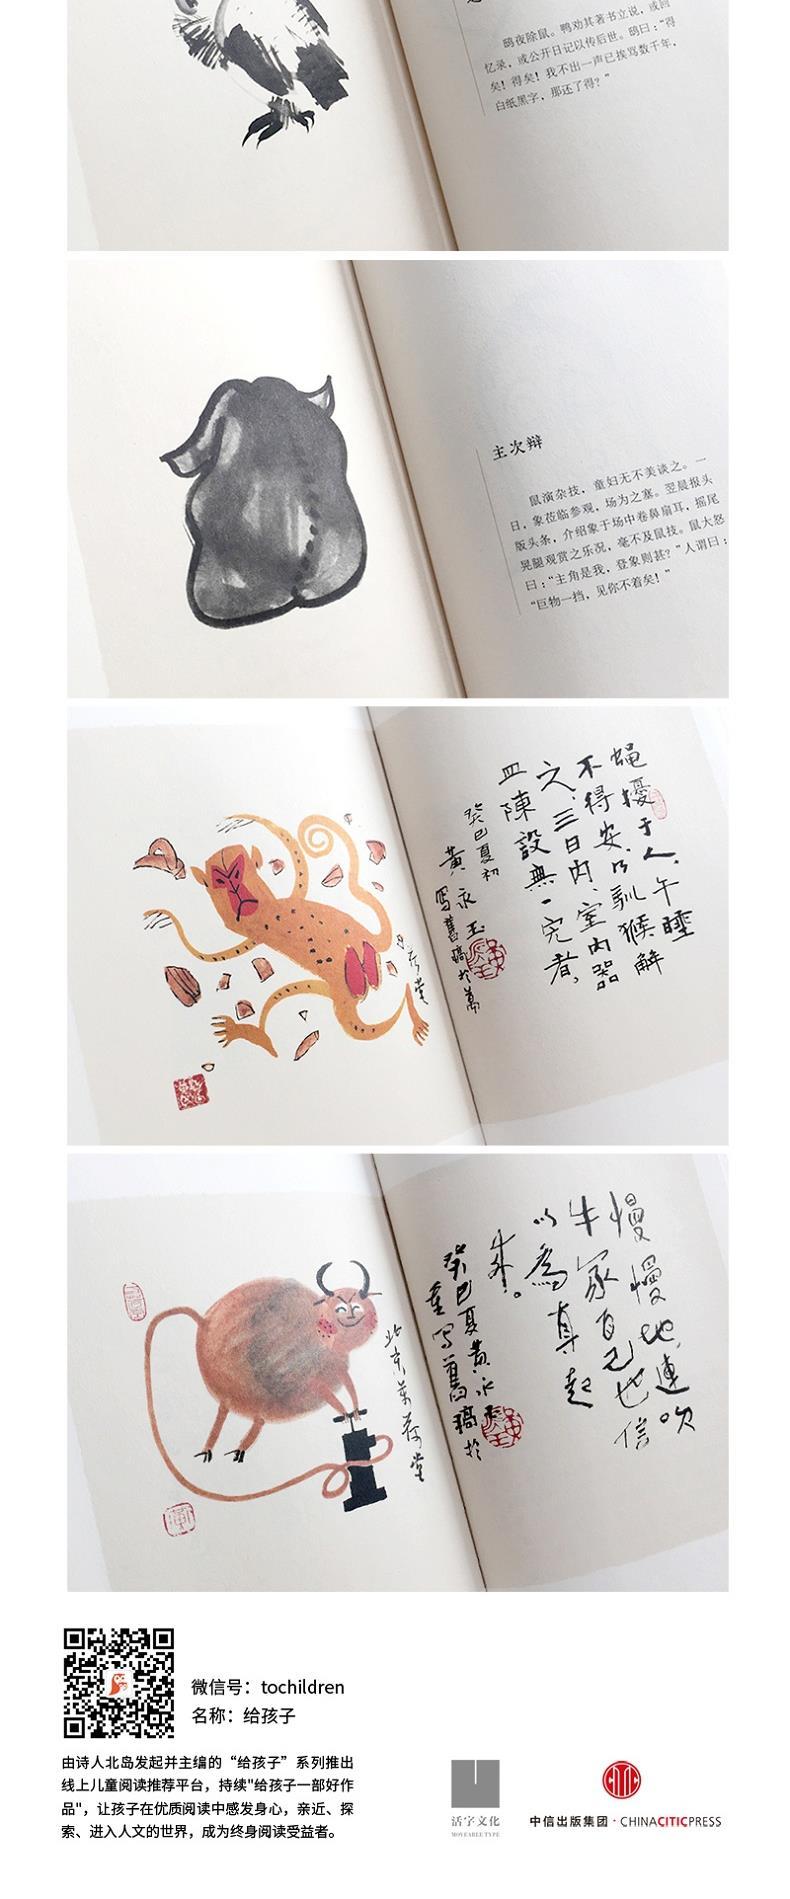 鸱夜除鼠。鸭劝其著书立说，或回
忆录，或公开日记以传后世。鸱曰：“得
矣！得矣！我不出一声已挨骂数千年，
白纸黑字，那还了得？”
主次辩
鼠演杂技，童妇无不美谈之。一
日，象莅临参观，场为之塞。翌晨报头
版头条，介绍象于场中卷鼻扇耳，摇尾
晃腿观赏之乐况，毫不及鼠技。鼠大怒
曰：“主角是我，登象则甚？”人谓曰：
“巨物一挡，见你不着矣！”
蝇擾于人，午睡
不得安，乃馴猴解
之，三日内，室内器
皿陳設無一完者。
癸巳夏初
黄永玉
寫舊稿於萬
荷堂
慢慢地，連吹
牛家自己也信
以為真起
来。
癸巳夏黄永玉
重写舊稿於
北京萬荷堂
微信号：tochildren
名称：给孩子
由诗人北岛发起并主编的“给孩子”系列推出
线上儿童阅读推荐平台，持续"给孩子一部好作
品"，让孩子在优质阅读中感发身心，亲近、探
索、进入人文的世界，成为终身阅读受益者。
活字文化
MOVEABLE TYPE
中信出版集团·CHINACITICPRESS